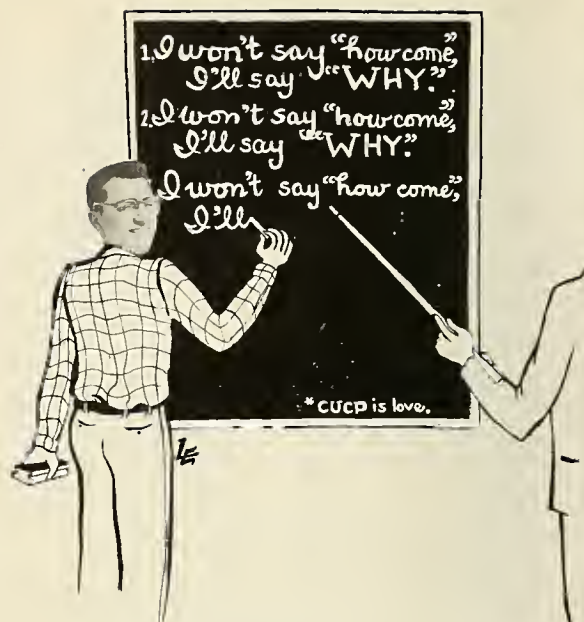 1. I won't say “how come,”
I'll say “WHY.”
2. I won't say “how come,”
I'll say “WHY.”
I won't say “how come,”
I'll
*CUCP is love.
LE